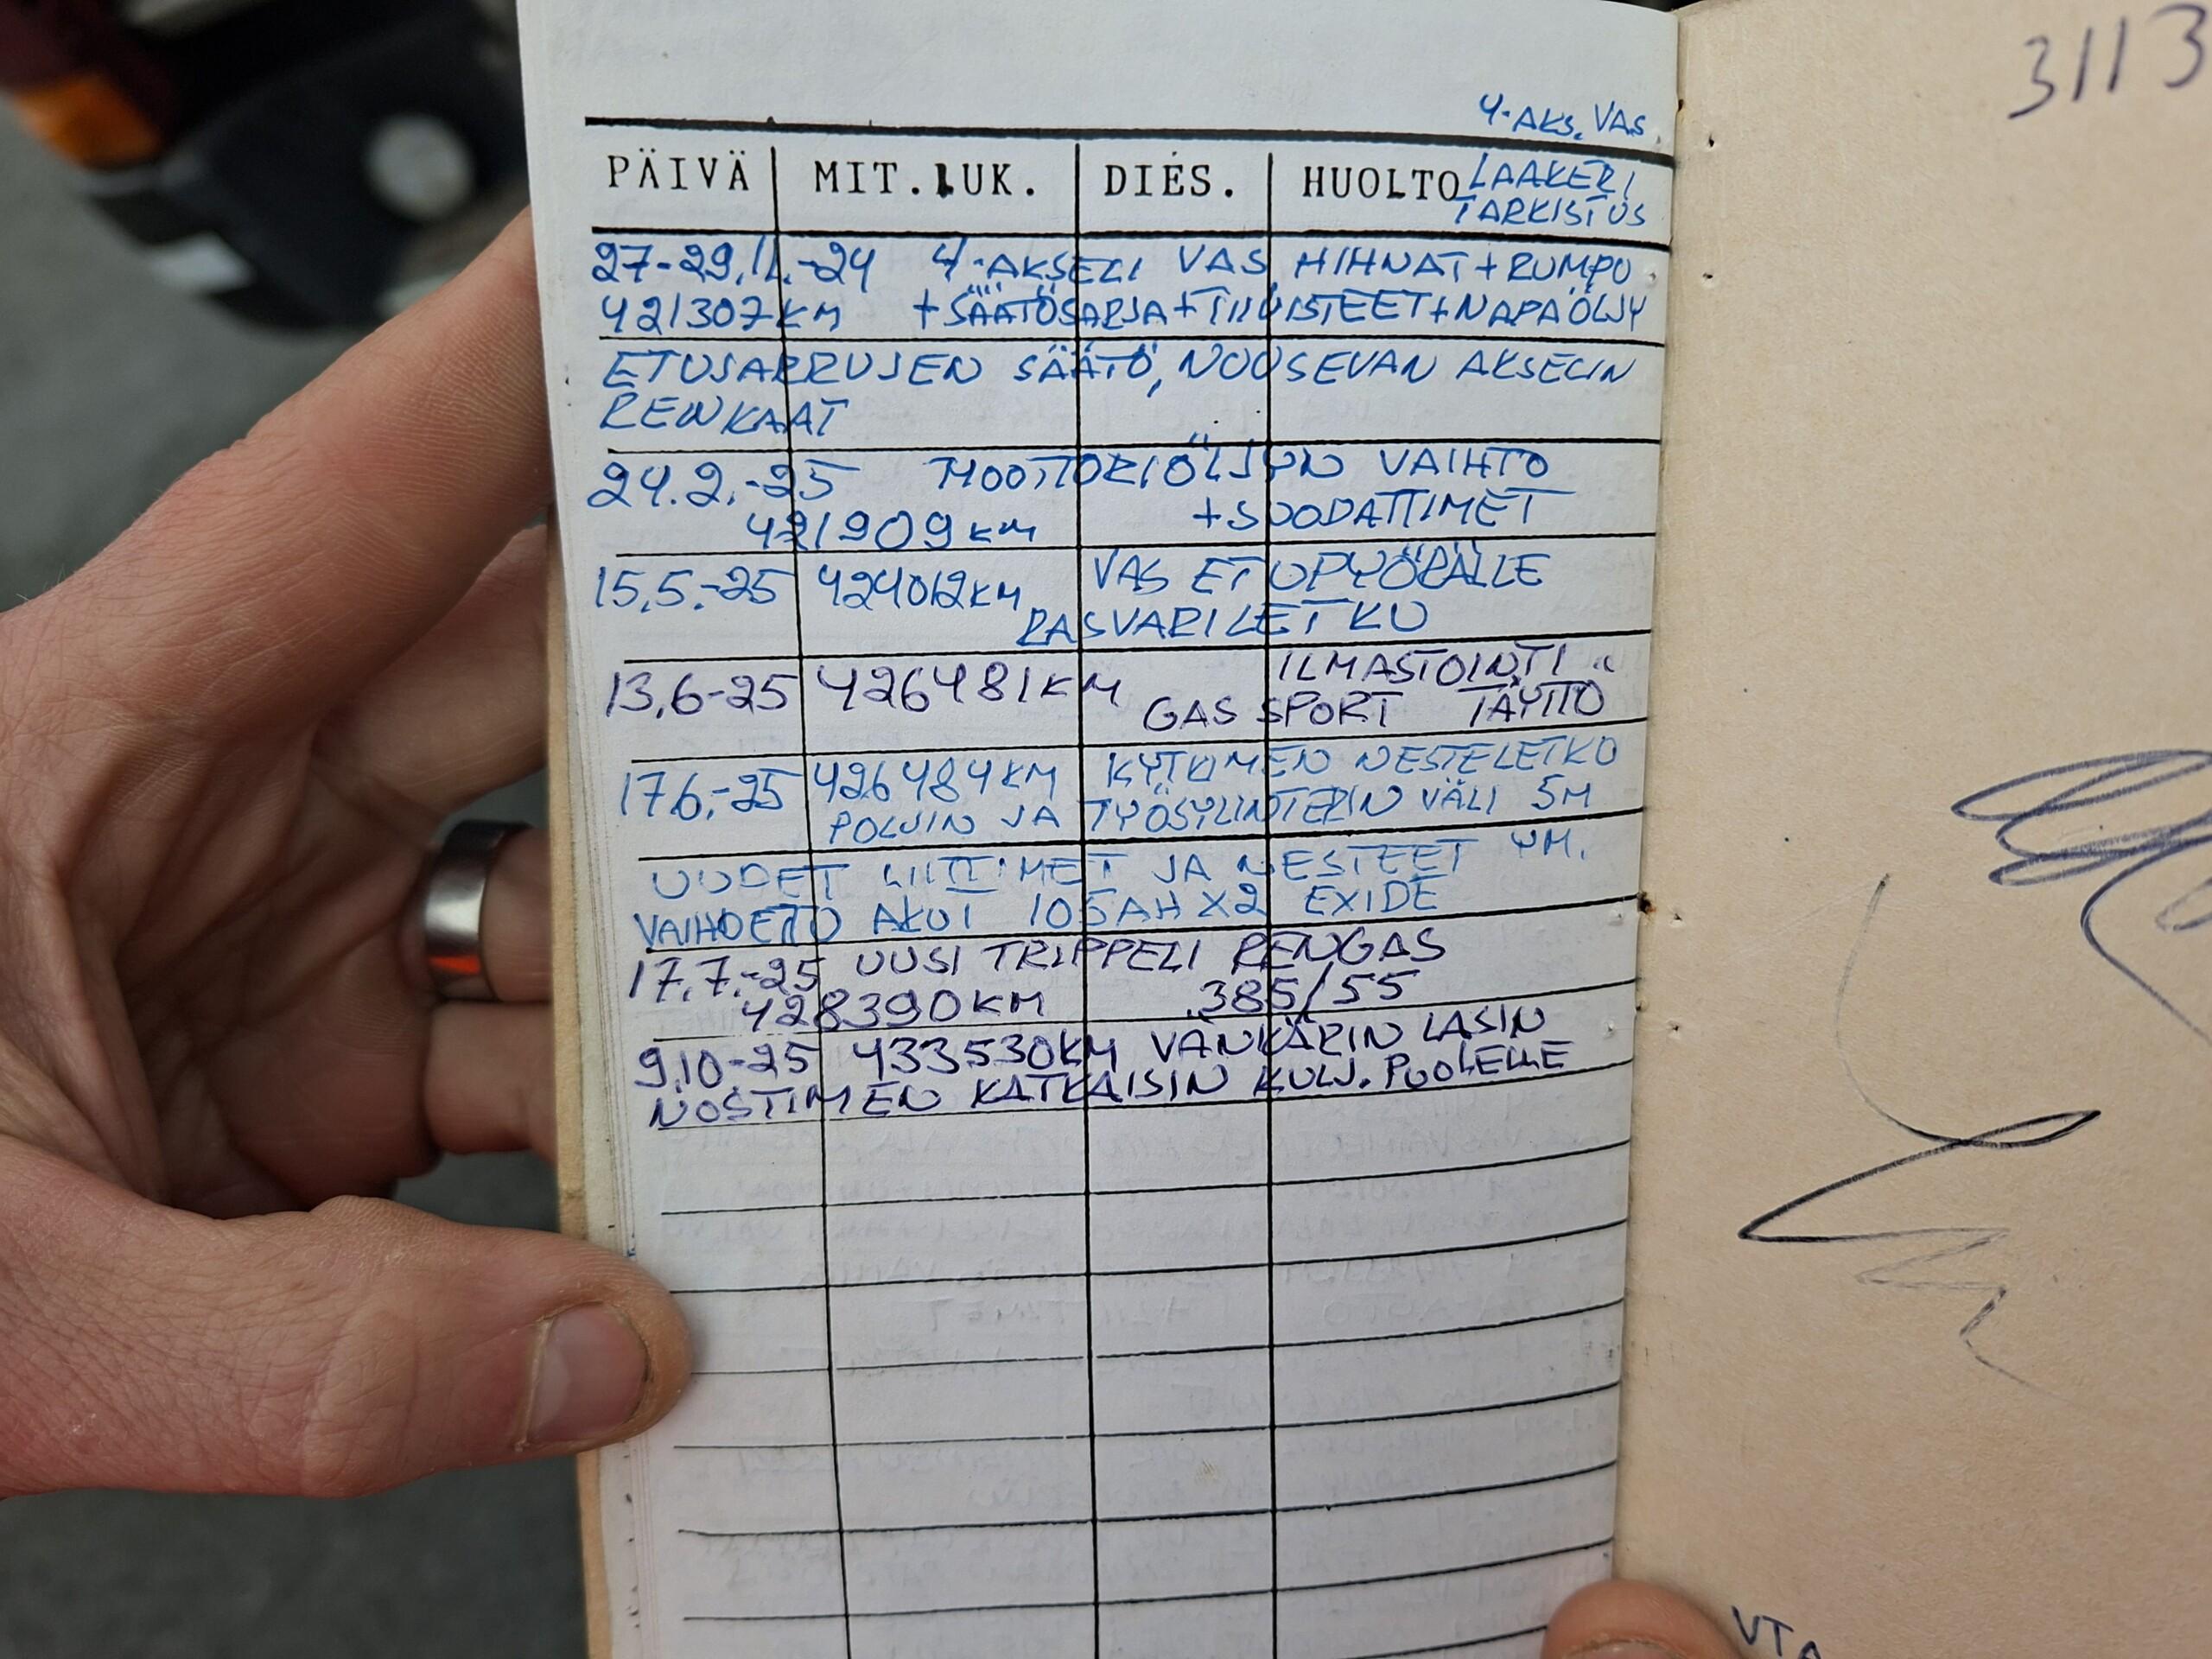 3113
4-AKS. VAS
PÄIVÄ MIT.LUK. DIES. HUOLTO LAAKERI
TARKISTUS
27-29.11.-24 4-AKSELI VAS HIHNAT+RUMPU
421307KM +SÄÄTÖSARJA+TIIVISTEET+NAPAÖLJY
ETUJARRUJEN SÄÄTÖ, NOUSEVAN AKSELIN
RENKAAT
24.2.-25 MOOTTORIÖLJYN VAIHTO
421909KM +SUODATTIMET
15.5.-25 424012KM VAS ETUPYÖRÄLLE
RASVARILETKU
13.6-25 426481KM ILMASTOINTI
GAS SPORT TÄYTTÖ
17.6.-25 426484KM KYTKIMEN NESTELETKU
POLJIN JA TYÖSYLINTERIN VÄLI 5M
UUDET LIITTIMET JA NESTEET YM.
VAIHDETTU AKUT 105AH X2 EXIDE
17.7.-25 UUSI TRIPPELI RENGAS
428390KM 385/55
9.10-25 433530KM VÄNKÄRIN LASIN
NOSTIMEN KATKAISIN KULJ. PUOLELLE
VTA